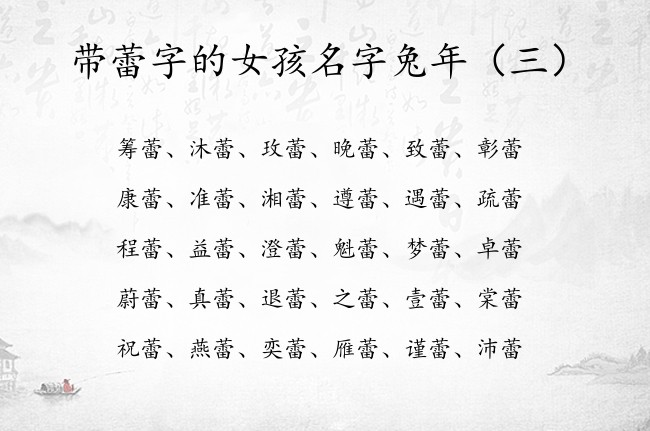 带蕾字的女孩名字兔年（三）
筹蕾、沐蕾、玫蕾、晚蕾、致蕾、彰蕾
康蕾、准蕾、湘蕾、遵蕾、遇蕾、疏蕾
程蕾、益蕾、澄蕾、魁蕾、梦蕾、卓蕾
蔚蕾、真蕾、退蕾、之蕾、壹蕾、棠蕾
祝蕾、燕蕾、奕蕾、雁蕾、谨蕾、沛蕾